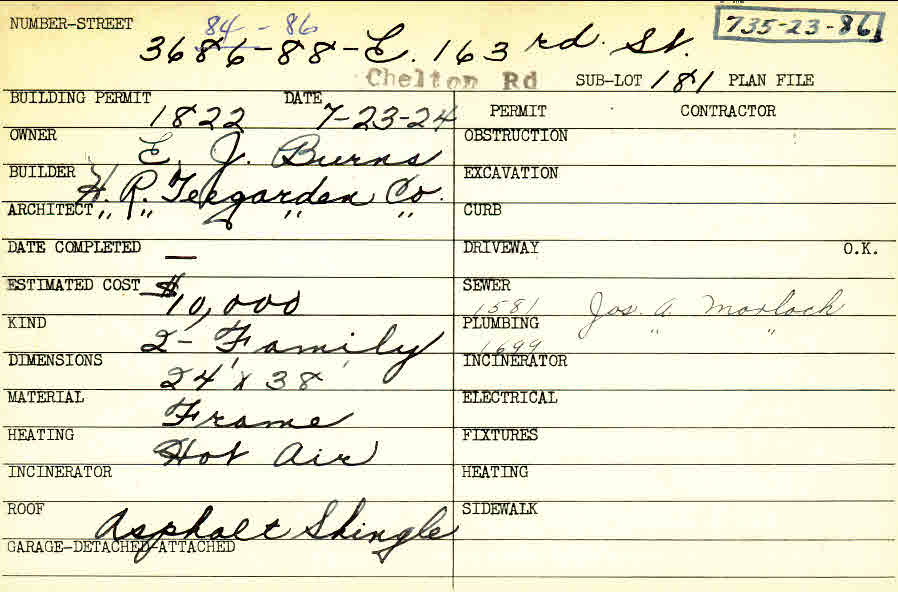 NUMBER-STREET 84 - 86 735-23-86
3686-88-E. 163 rd. St.
Chelton Rd SUB-LOT 181 PLAN FILE
BUILDING PERMIT 1822 DATE 7-23-24 PERMIT CONTRACTOR
OWNER E. J. Burns OBSTRUCTION
BUILDER H. R. Teegarden Co. EXCAVATION
ARCHITECT " " " " CURB
DATE COMPLETED — DRIVEWAY O.K.
ESTIMATED COST $10,000 SEWER 1581 Jos. A. Morlock
KIND 2-Family PLUMBING 1699 " "
DIMENSIONS 24' x 38' INCINERATOR
MATERIAL Frame ELECTRICAL
HEATING Hot Air FIXTURES
INCINERATOR HEATING
ROOF Asphalt Shingle SIDEWALK
GARAGE-DETACHED-ATTACHED